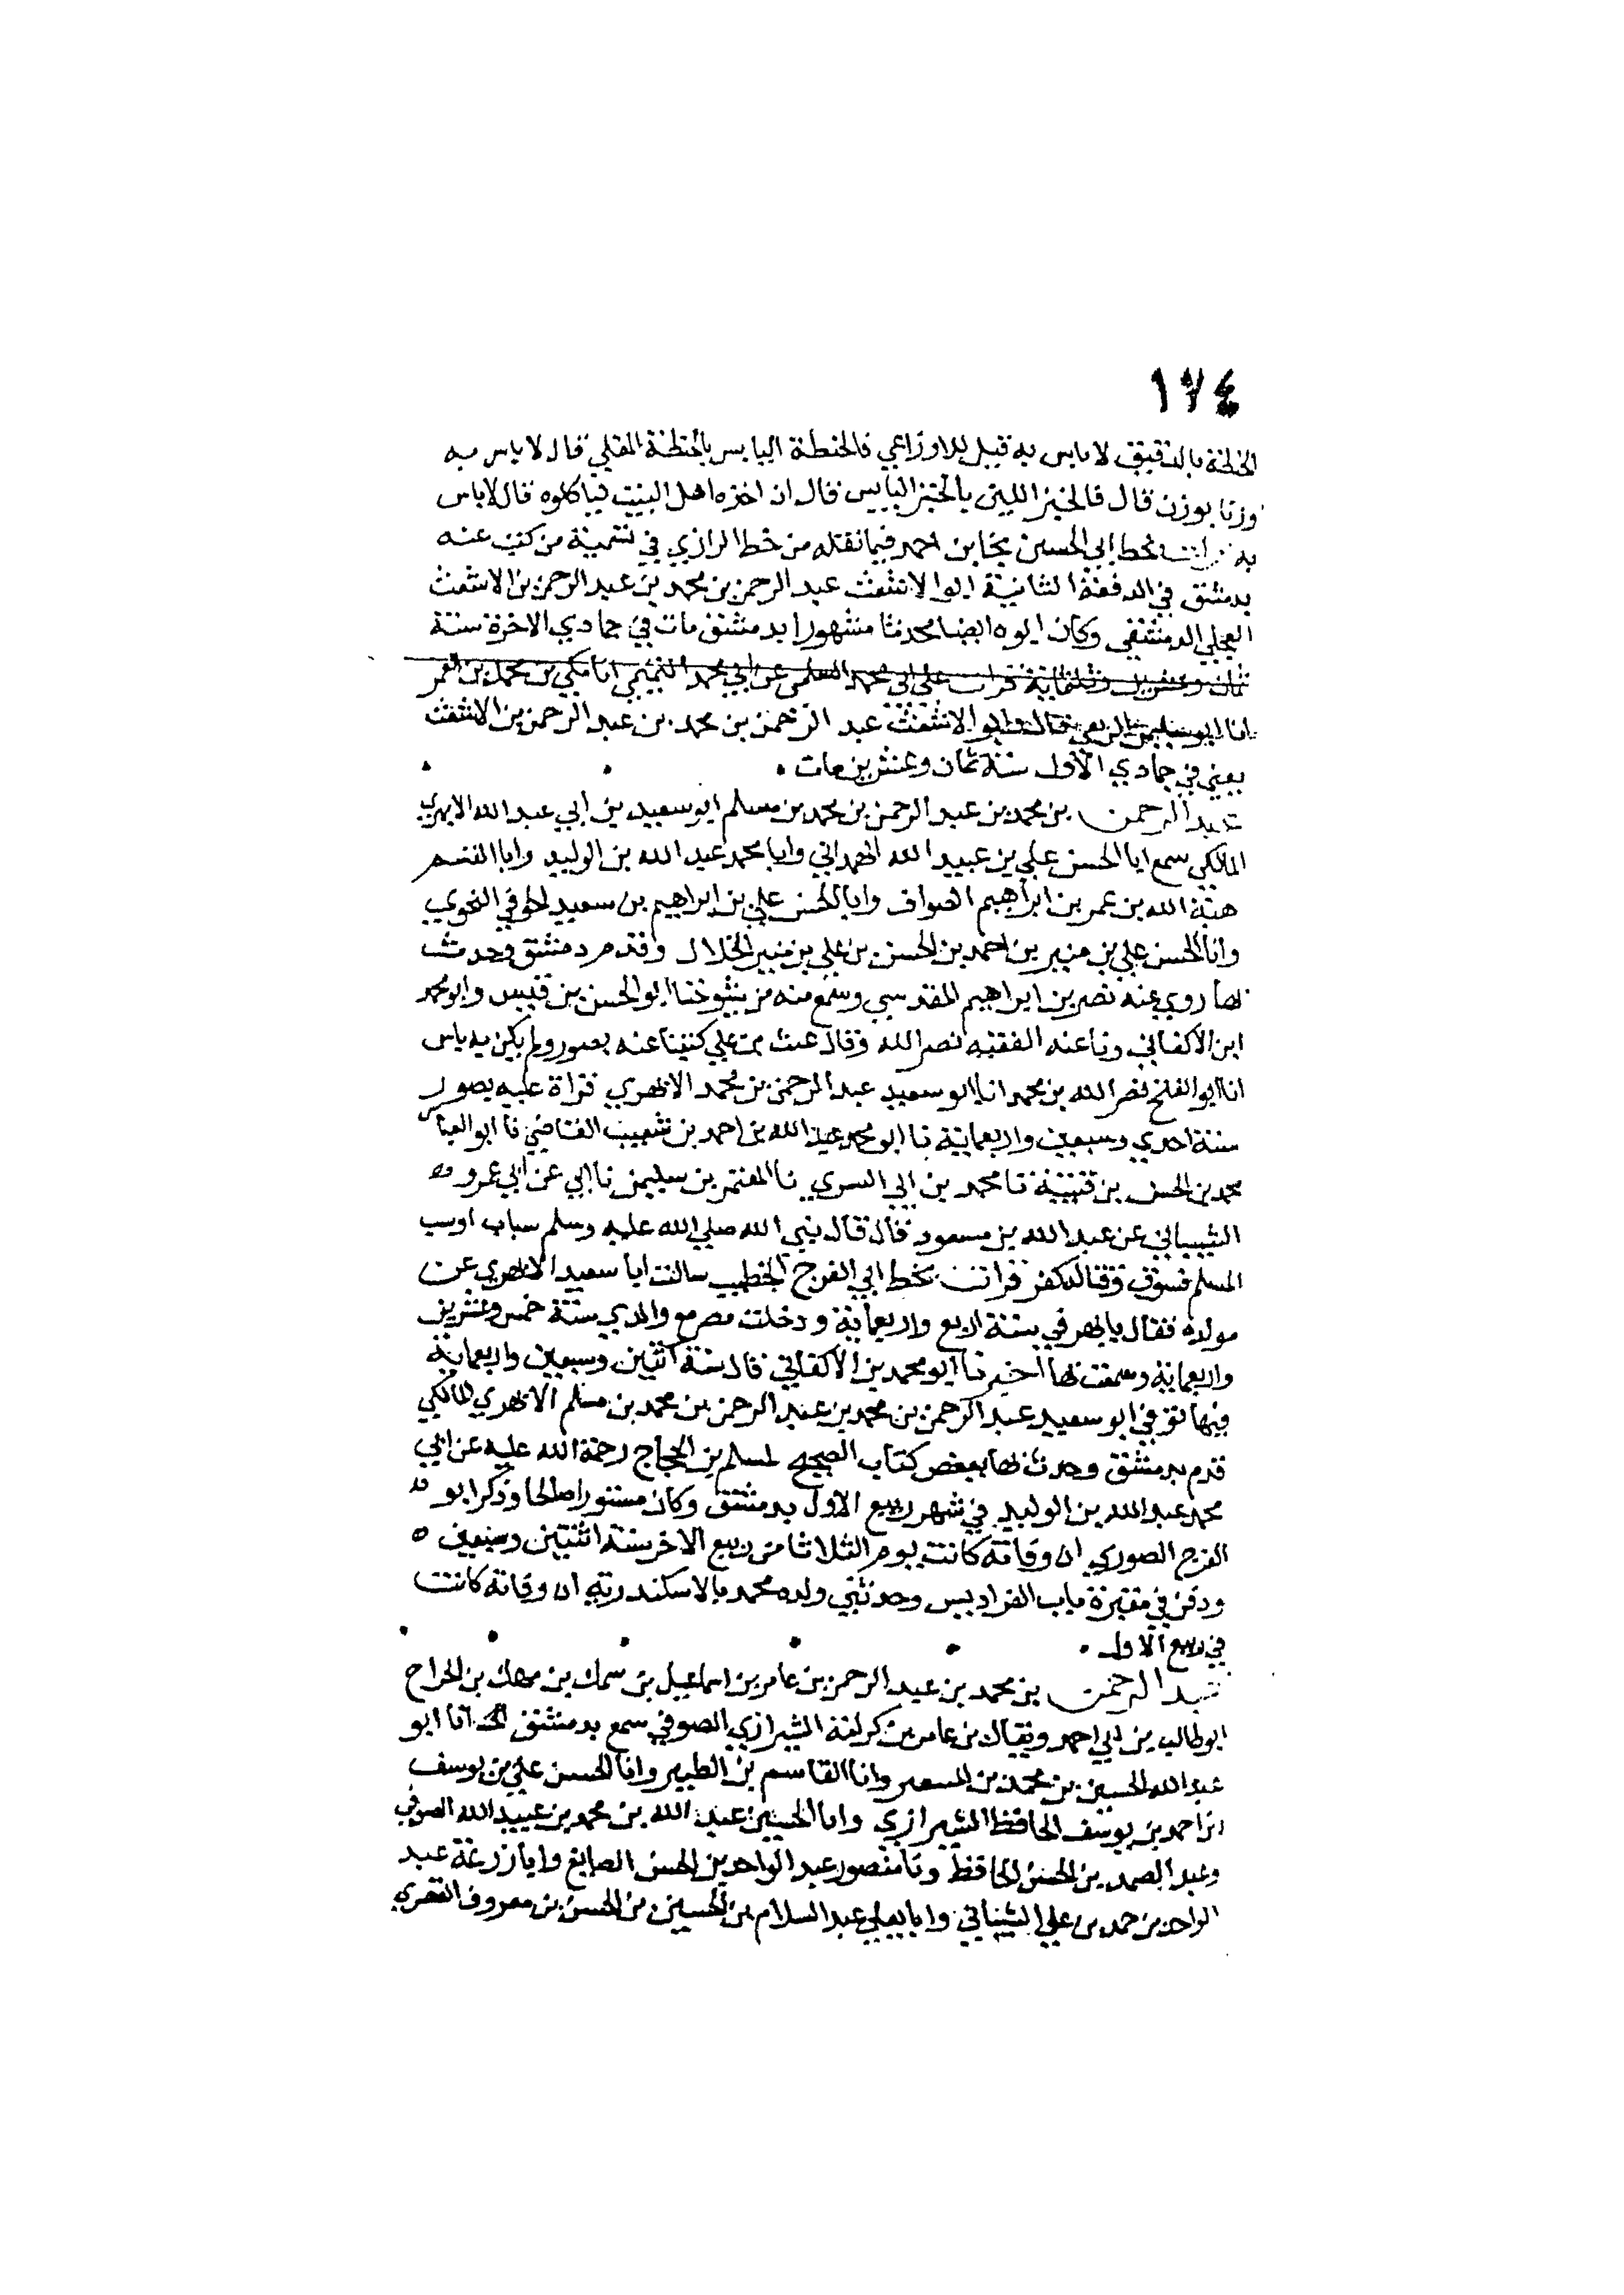 ١٧٤
الحنطة بالدقيق لا باس به قيل للاوزاعي فالحنطة اليابس بالحنطة المقلي قال لا باس به
وزنا بوزن قال فالخبز اللين بالخبز اليابس قال ان اخذه اهل البيت فياكلوه قال لاباس
به قرات بخط ابي الحسين نجا بن احمد فيما نقله من خط الرازي في تسمية من كتب عنه
بدمشق في الدفعة الثانية ابو الاشعث عبد الرحمن بن محمد بن عبد الرحمن بن الاشعث
العجلي الدمشقي وكان ابوه ايضا محدثا مشهورا بدمشق مات في جمادي الاخرة سنة
ثمان وعشرين وثلثماية قرات علي ابي محمد السلمي عن ابي محمد التميمي انا مكي بن محمد بن الغمر
انا ابو سليمن الربعي قال وابو الاشعث عبد الرحمن بن محمد بن عبد الرحمن بن الاشعث
يعني في جمادي الاول سنة ثمان وعشرين مات
عبد الرحمن بن محمد بن عبد الرحمن بن محمد بن مسلم ابو سعيد بن ابي عبد الله الابهري
المالكي سمع ابا الحسن علي بن عبيد الله الهمداني وابا محمد عبد الله بن الوليد وابا القسم
هبة الله بن عمر بن ابراهيم الصواف وابا الحسن علي بن ابراهيم بن سعيد الحوفي النحوي
وابا الحسن علي بن منير بن احمد بن الحسن بن علي بن منير الخلال وقدم دمشق وحدث
بها روي عنه نصر بن ابراهيم المقدسي وسمع منه من شيوخنا ابو الحسن بن قبيس وابو محمد
ابن الاكفاني ونا عنه الفقيه نصر الله وقال غيث بن علي كتبنا عنه بصور ولم يكن به باس
انا ابو الفتح نصر الله بن محمد انا ابو سعيد عبد الرحمن بن محمد الابهري قراة عليه بصور
سنة احدي وسبعين واربعماية نا ابو محمد عبد الله بن احمد بن شعيب القاضي نا ابو العباس
محمد بن الحسن بن قتيبة نا محمد بن ابي السري نا المعتمر بن سليمن نا ابي عن ابي عمرو
الشيباني عن عبد الله بن مسعود قال قال نبي الله صلي الله عليه وسلم سباب اوسب
المسلم فسوق وقتاله كفر قرات بخط ابي الفرج الخطيب سالت ابا سعيد الابهري عن
مولده فقال بابهر في سنة اربع واربعماية ودخلت مصر مع والدي سنة خمس وعشرين
واربعماية وسمعت بها اخبرنا ابو محمد بن الاكفاني قال سنة اثنين وسبعين واربعماية
فيها توفي ابو سعيد عبد الرحمن بن محمد بن عبد الرحمن بن محمد بن مسلم الابهري المالكي
قدم بدمشق وحدث بها ببعض كتاب الصحيح لمسلم بن الحجاج رحمة الله عليه عن ابي
محمد عبد الله بن الوليد في شهر ربيع الاول بدمشق وكان مستورا صالحا وذكر ابو
الفرج الصوري ان وفاته كانت يوم الثلاثا من ربيع الاخر سنة اثنتين وسبعين
ودفن في مقبرة باب الفراديس وحدثني ولده محمد بالاسكندرية ان وفاته كانت
في ربيع الاول
عبد الرحمن بن محمد بن عبد الرحمن بن عامر بن اسماعيل بن سمك بن مهلك بن الجراح
ابو طالب بن ابي احمد ويقال بن عامر بن الشيرازي الصوفي سمع بدمشق ابو
عبد الله الحسين بن محمد بن وابا القاسم بن الطبير وابا الحسن علي بن يوسف
بن احمد بن يوسف الحافظ الشيرازي وابا الحسين عبد الله بن محمد بن عبيد الله الصوفي
وعبد الصمد بن الحسن الحافظ وبا منصور عبد الواحد بن الحسن الصايغ وابا زرعة عبد
الواحد بن حمد بن علي الشيباني وابا يعلي عبد السلام بن الحسين بن الحسن بن معروف